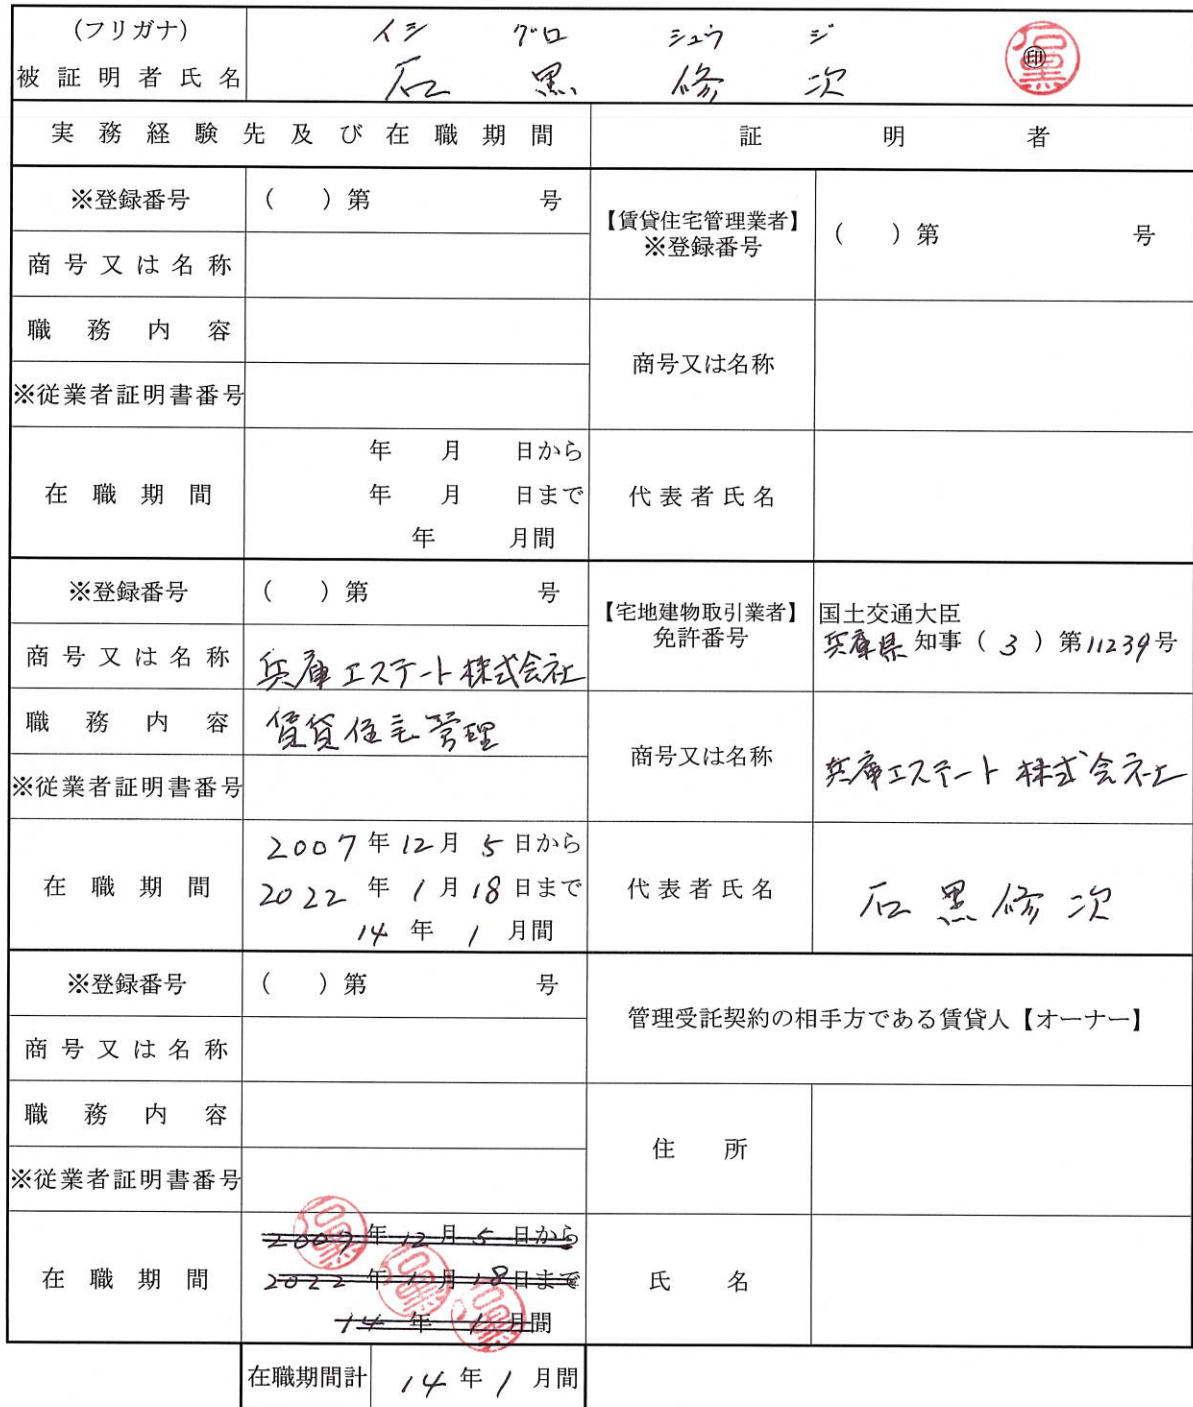 (フリガナ) イシ グロ シュウ ジ
被証明者氏名 石黒修次 ㊞
実務経験先及び在職期間 証明者
※登録番号 ( )第 号
【賃貸住宅管理業者】
※登録番号 ( )第 号
商号又は名称
職務内容
商号又は名称
※従業者証明書番号
在職期間
年 月 日から
年 月 日まで
年 月間
代表者氏名
※登録番号 ( )第 号
【宅地建物取引業者】
免許番号
国土交通大臣
兵庫県 知事 ( 3 ) 第11239号
商号又は名称 兵庫エステート株式会社
職務内容 賃貸住宅管理
商号又は名称 兵庫エステート株式会社
※従業者証明書番号
在職期間
2007年12月5日から
2022年1月18日まで
14年1月間
代表者氏名 石黒修次
※登録番号 ( )第 号
管理受託契約の相手方である賃貸人【オーナー】
商号又は名称
職務内容
住所
※従業者証明書番号
在職期間
2007年12月5日から
2022年1月18日まで
14年1月間
氏名
在職期間計 14年1月間